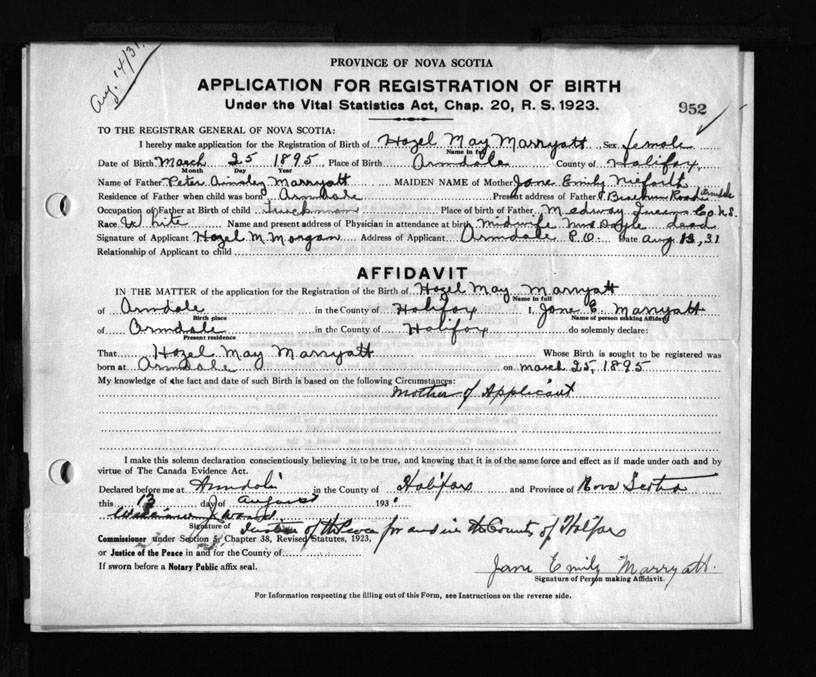 Aug. 14/31
PROVINCE OF NOVA SCOTIA
APPLICATION FOR REGISTRATION OF BIRTH
Under the Vital Statistics Act, Chap. 20, R. S. 1923.
952
TO THE REGISTRAR GENERAL OF NOVA SCOTIA:
I hereby make application for the Registration of Birth of Hazel May Marryatt Sex female
Name in full
Date of Birth March 25 1895 Place of Birth Armdale County of Halifax
Month Day Year
Name of Father Peter Marryatt MAIDEN NAME of Mother Jane Emily Nieforth
Residence of Father when child was born Armdale Present address of Father Road Armdale
Occupation of Father at Birth of child Truckman Place of birth of Father Medway Queens Co N.S.
Race White Name and present address of Physician in attendance at birth Midwife Mrs Doyle dead
Signature of Applicant Hazel M. Morgan Address of Applicant Armdale P.O. Date Aug 13, 31
Relationship of Applicant to child
AFFIDAVIT
IN THE MATTER of the application for the Registration of the Birth of Hazel May Marryatt
Name in full
of Armdale in the County of Halifax I, Jane E. Marryatt
Birth place Name of person making Affidavit
of Armdale in the County of Halifax do solemnly declare:
Present residence
That Hazel May Marryatt Whose Birth is sought to be registered was
born at Armdale on March 25, 1895
My knowledge of the fact and date of such Birth is based on the following Circumstances:
Mother of Applicant
I make this solemn declaration conscientiously believing it to be true, and knowing that it is of the same force and effect as if made under oath and by
virtue of The Canada Evidence Act.
Declared before me at Armdale in the County of Halifax and Province of Nova Scotia
this 13 day of August 193
Signature of Justice of the Peace for and in the County of Halifax
Commissioner under Section 5, Chapter 38, Revised Statutes, 1923,
or Justice of the Peace in and for the County of
If sworn before a Notary Public affix seal.
Jane Emily Marryatt.
Signature of Person making Affidavit.
For Information respecting the filling out of this Form, see Instructions on the reverse side.